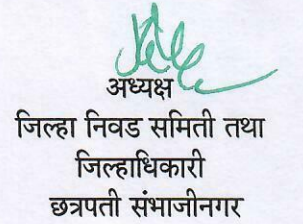 अध्यक्ष
जिल्हा निवड समिती तथा
जिल्हाधिकारी
छत्रपती संभाजीनगर